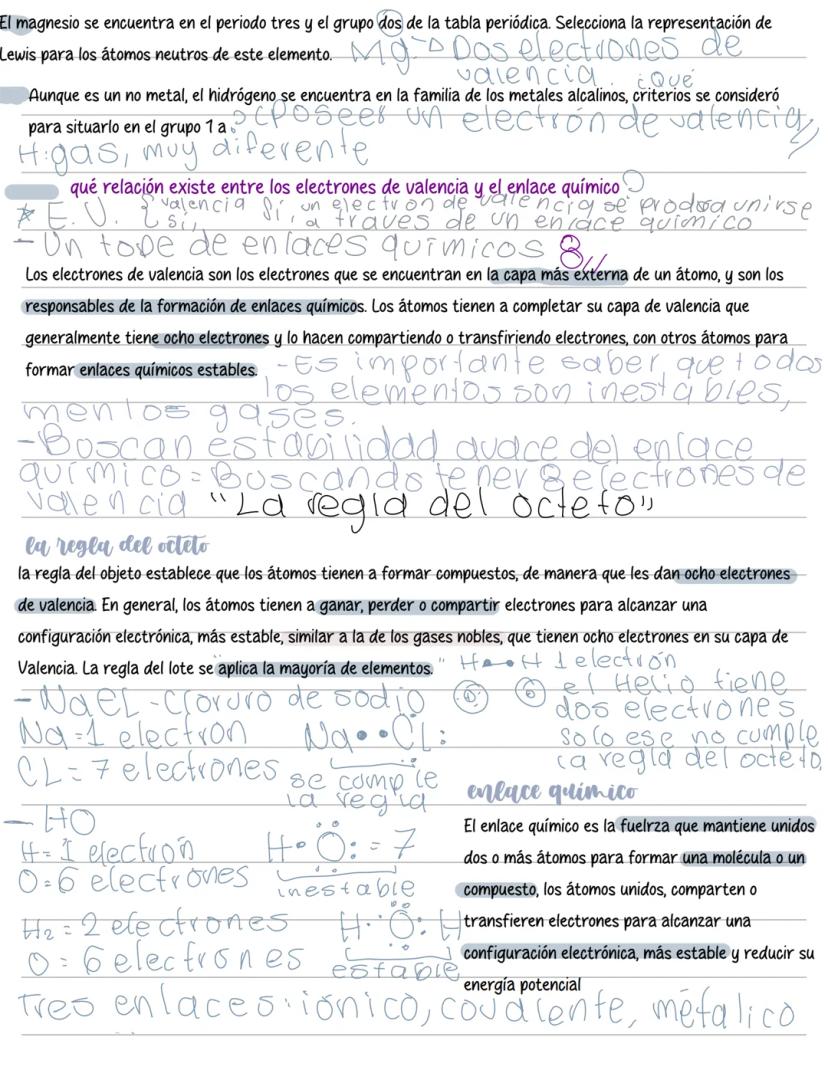 El magnesio se encuentra en el periodo tres y el grupo dos de la tabla periódica. Selecciona la representación de
Lewis para los átomos neutros de este elemento. Mg → Dos electrones de
valencia. ¿Qué
Aunque es un no metal, el hidrógeno se encuentra en la familia de los metales alcalinos, criterios se consideró
para situarlo en el grupo 1 a poseer un electrón de valencia
H: gas, muy diferente
qué relación existe entre los electrones de valencia y el enlace químico?
* E. V. valencia Si, un electron de valencia se unirse
Si, a traves de un enlace químico
- Un tope de enlaces químicos 8
Los electrones de valencia son los electrones que se encuentran en la capa más externa de un átomo, y son los
responsables de la formación de enlaces químicos. Los átomos tienen a completar su capa de valencia que
generalmente tiene ocho electrones y lo hacen compartiendo o transfiriendo electrones, con otros átomos para
formar enlaces químicos estables. - Es importante saber que todos
los elementos son inestables,
men los gases.
- Buscan estabilidad del enlace
químico = Buscando tener 8 electrones de
valencia "La regla del octeto"
la regla del octeto
la regla del objeto establece que los átomos tienen a formar compuestos, de manera que les dan ocho electrones
de valencia. En general, los átomos tienen a ganar, perder o compartir electrones para alcanzar una
configuración electrónica, más estable, similar a la de los gases nobles, que tienen ocho electrones en su capa de
Valencia. La regla del lote se aplica la mayoría de elementos. H••H 1 electrón
- NaCL - Cloruro de sodio el Helio tiene
dos electrones
Na = 1 electron Na••CL: solo ese no cumple
la regla del octeto.
CL = 7 electrones se cumple
la regla
enlace químico
- HO
El enlace químico es la fuelrza que mantiene unidos
H = 1 electrón H•O: = 7
dos o más átomos para formar una molécula o un
O = 6 electrones inestable
compuesto, los átomos unidos, comparten o
H2 = 2 electrones H•O: H
transfieren electrones para alcanzar una
O = 6 electrones estable
configuración electrónica, más estable y reducir su
energía potencial
Tres enlaces: iónico, covalente, métalico